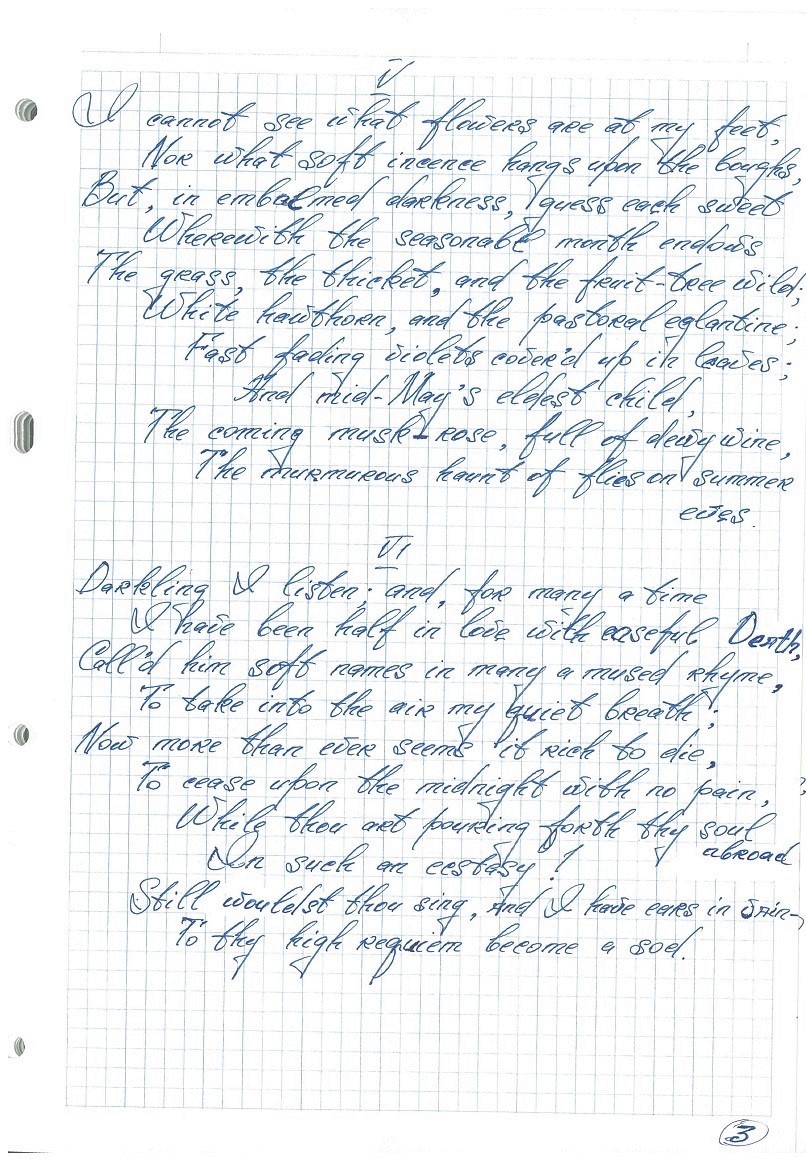 V
I cannot see what flowers are at my feet,
Nor what soft incence hangs upon the boughs,
But, in embalmed darkness, guess each sweet
Wherewith the seasonable month endows
The grass, the thicket, and the fruit-tree wild;
White hawthorn, and the pastoral eglantine;
Fast fading violets cover'd up in leaves;
And mid-May's eldest child,
The coming musk-rose, full of dewy wine,
The murmurous haunt of flies on summer
eves.
VI
Darkling I listen; and, for many a time
I have been half in love with easeful Death,
Call'd him soft names in many a mused rhyme,
To take into the air my quiet breath;
Now more than ever seems it rich to die,
To cease upon the midnight with no pain,
While thou art pouring forth thy soul
abroad
In such an ecstasy!
Still wouldst thou sing, and I have ears in vain-,
To thy high requiem become a sod.
3